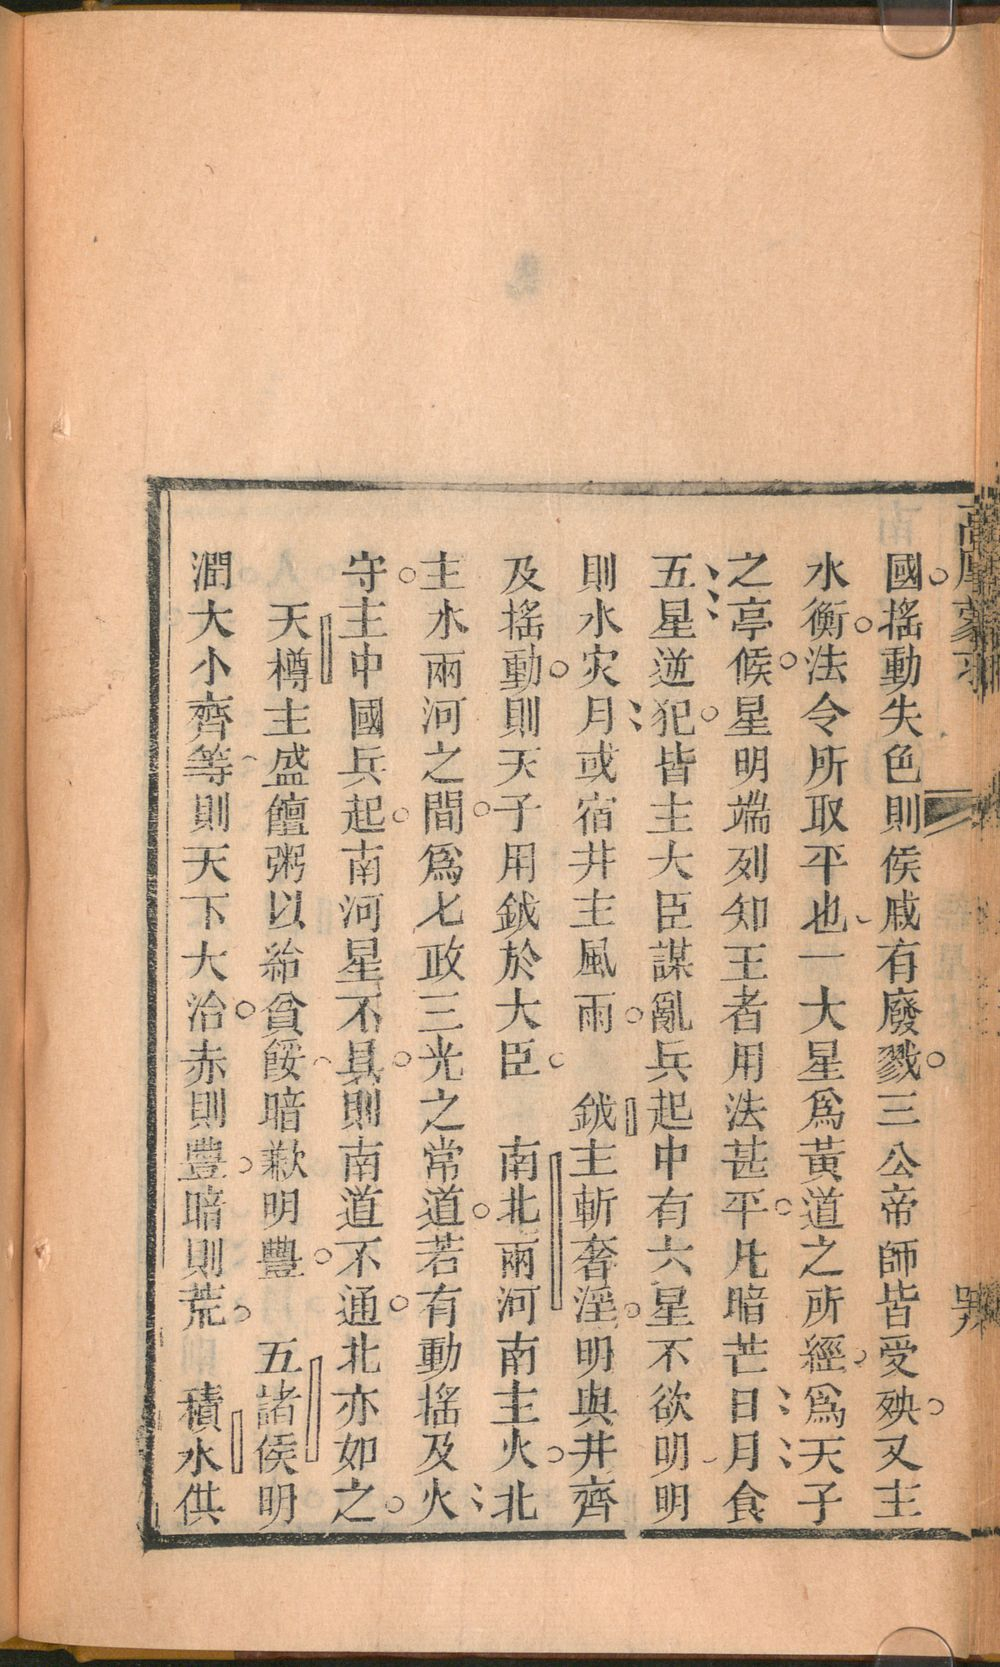 國搖動失色則侯戚有廢戮三公帝師皆受殃又主
水衡法令所取平也一大星爲黃道之所經爲天子
之亭候星明端列知王者用法甚平凡暗芒日月食
五星逆犯皆主大臣謀亂兵起中有六星不欲明明
則水灾月或宿井主風雨　鉞主斬奢淫明與井齊
及搖動則天子用鉞於大臣　南北兩河南主火北
主水兩河之間爲七政三光之常道若有動搖及火
守主中國兵起南河星不具則南道不通北亦如之
天樽主盛饘粥以給貧餒暗歉明豐　五諸侯明
潤大小齊等則天下大治赤則豐暗則荒　積水供